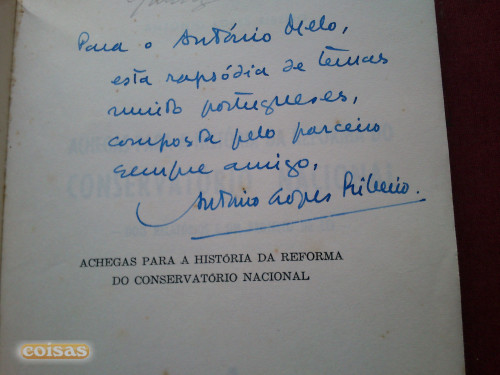 Para o António Melo,
esta rapsódia de temas
muito portugueses,
composta pelo parceiro
sempre amigo,
António Lopes Ribeiro.
CONSERVATÓRIO NACIONAL
ACHEGAS PARA A HISTÓRIA DA REFORMA
DO CONSERVATÓRIO NACIONAL
coisas